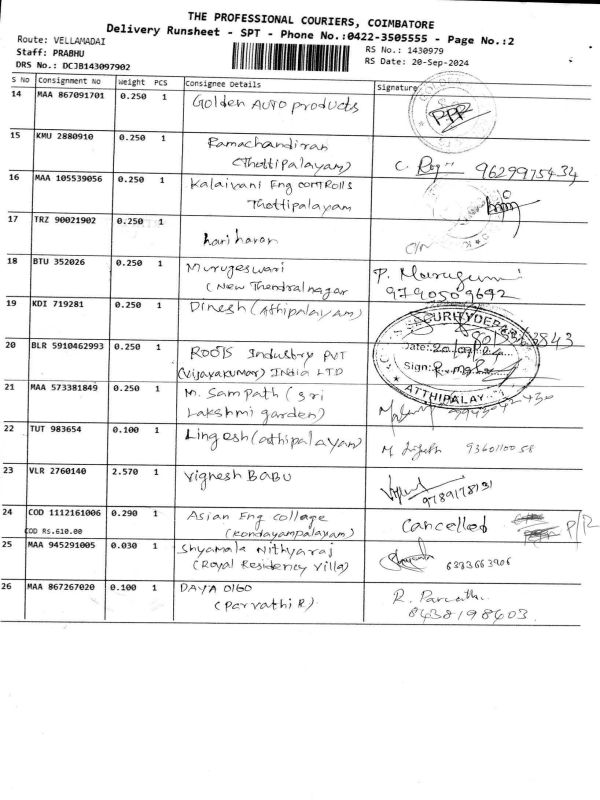 THE PROFESSIONAL COURIERS, COIMBATORE
Delivery Runsheet - SPT - Phone No.:0422-3505555 - Page No.:2
Route: VELLAMADAI
Staff: PRABHU
DRS No.: DCJB143097902
RS No.: 1430979
RS Date: 20-Sep-2024
S No Consignment No Weight PCS Consignee Details Signature
14 MAA 867091701 0.250 1 Golden AUTO products
15 KMU 2880910 0.250 1 Ramachandiran
(Thottipalayam) 9629975434
16 MAA 105539056 0.250 1 Kalaivani Eng controlls
Thottipalayam
17 TRZ 90021902 0.250 1
hariharan
18 BTU 352026 0.250 1 Murugeswari
(New Thendralnagar
9790509692
19 KDI 719281 0.250 1 Dinesh (Athipalayam)
SECURITY DEPAR
20 BLR 5910462993 0.250 1 ROOTS Industry PVT
Date: 20/09/24
(Vijayakumar) India LTD
Sign:
ATTHIPALAY
21 MAA 573381849 0.250 1 M. Sampath (sri
Lakshmi garden)
22 TUT 983654 0.100 1 Lingesh (athipalayam) 9360110058
23 VLR 2760140 2.570 1 Vignesh BABU
9789178131
24 COD 1112161006 0.290 1 Asian Eng collage Cancelled P/R
COD Rs.610.00 (Kondayampalayam)
25 MAA 945291005 0.030 1 Shyamala Nithyaraj
(Royal Residency villa) 6383663906
26 MAA 867267020 0.100 1 DAYA 0160 R. Parvathi
(Parvathi R) 8438198603